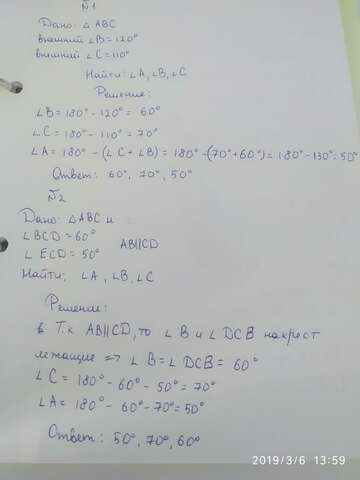 №1
Дано: △ ABC
внешний ∠B = 120°
внешний ∠C = 110°
Найти: ∠A, ∠B, ∠C
Решение:
∠B = 180° - 120° = 60°
∠C = 180° - 110° = 70°
∠A = 180° - (∠C + ∠B) = 180° - (70° + 60°) = 180° - 130° = 50°
Ответ: 60°, 70°, 50°
№2
Дано: △ABC и
∠BCD = 60°
AB||CD
∠ ECD = 50°
Найти: ∠A, ∠B, ∠C
Решение:
Т.к AB||CD, то ∠B и ∠DCB накрест
лежащие => ∠B = ∠DCB = 60°
∠C = 180° - 60° - 50° = 70°
∠A = 180° - 60° - 70° = 50°
Ответ: 50°, 70°, 60°
2019/3/6 13:59